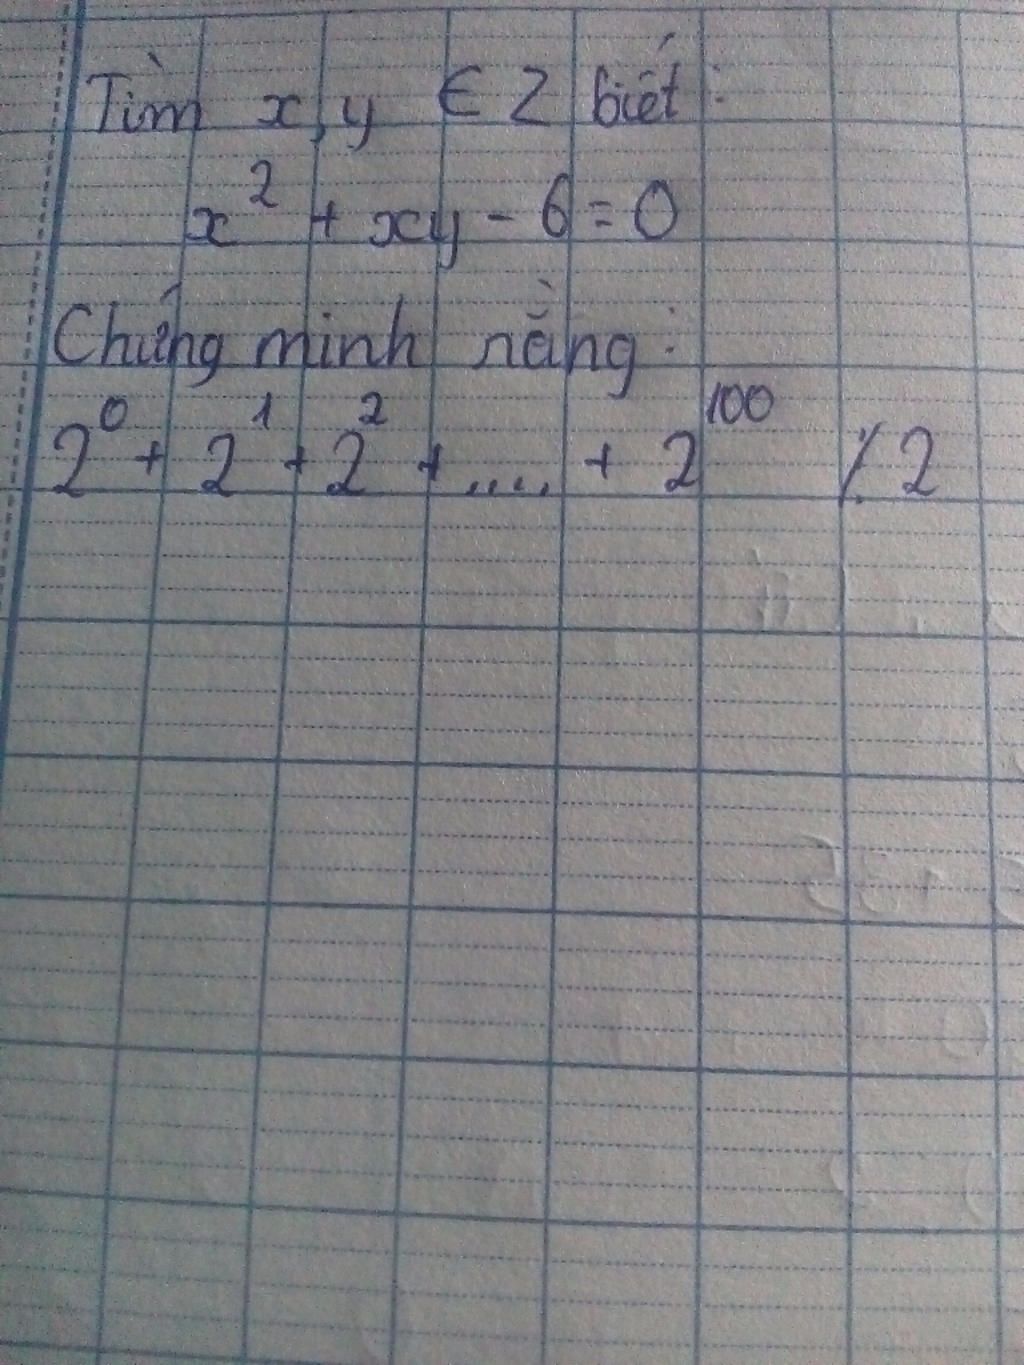 Tìm x, y ∈ Z biết:
x² + xy - 6 = 0
Chứng minh rằng:
2⁰ + 2¹ + 2² + ..... + 2¹⁰⁰ ⋮̸ 2